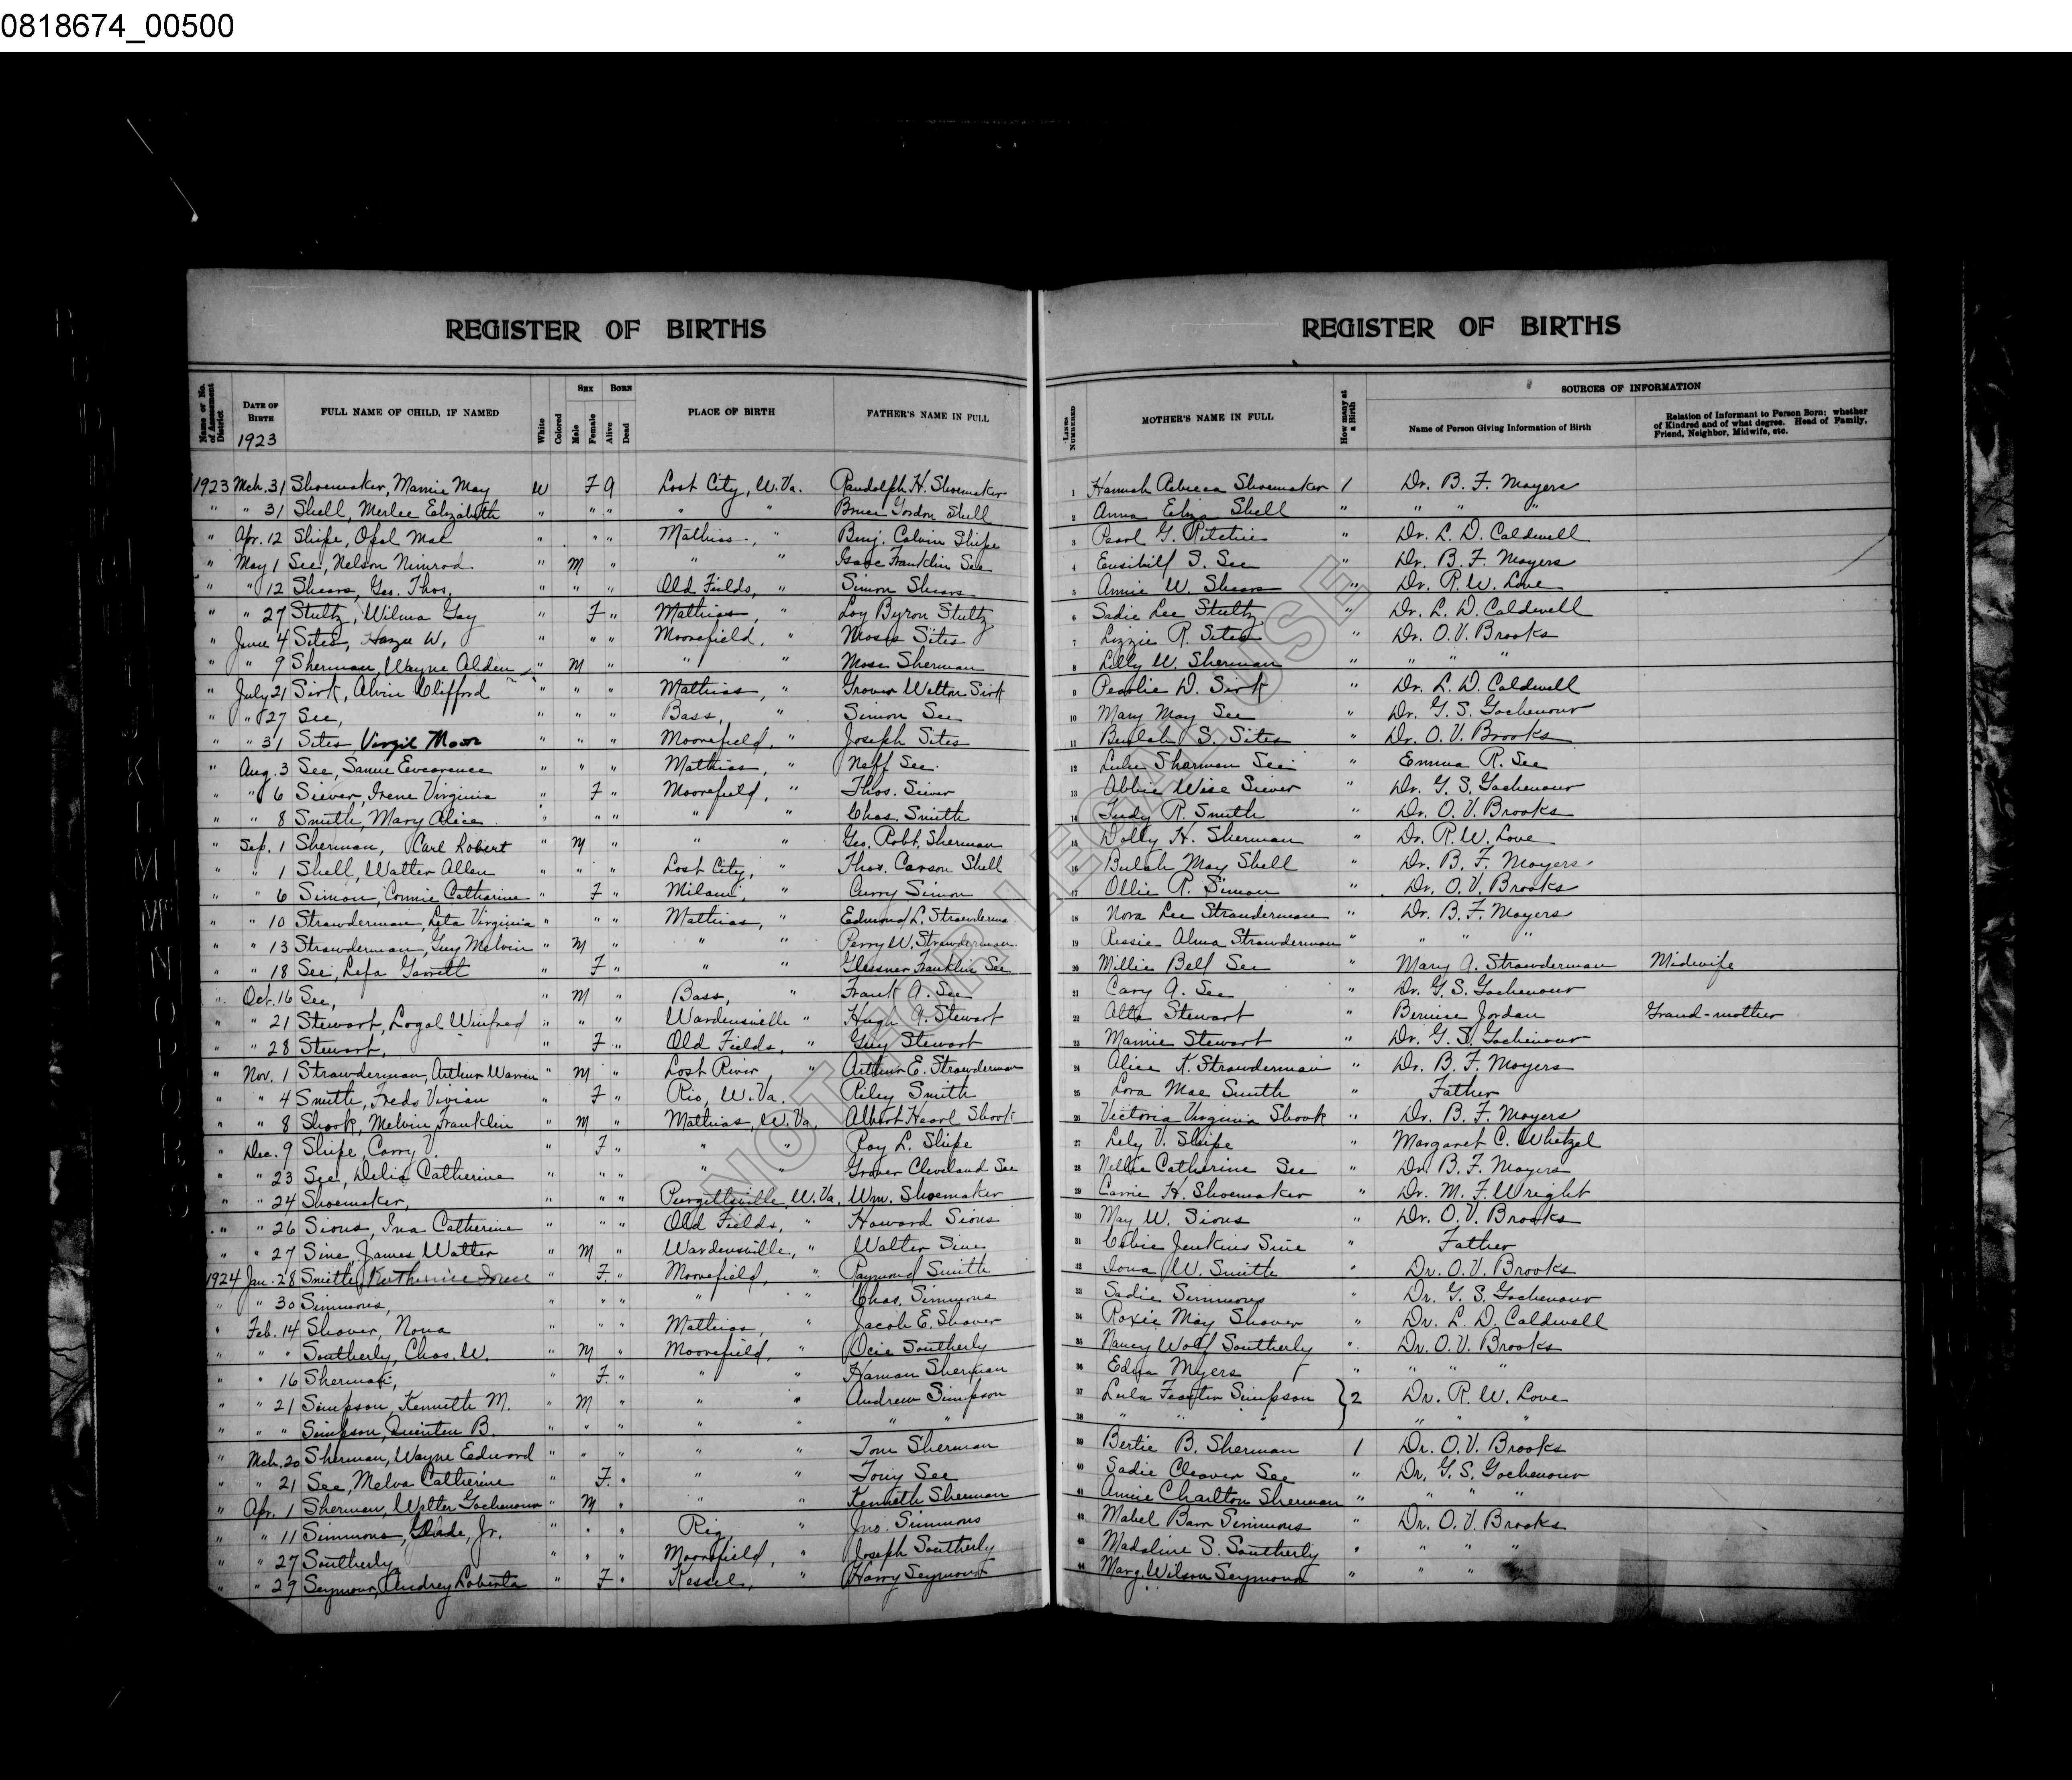 0818674_00500
REGISTER OF BIRTHS
REGISTER OF BIRTHS
Name or No. of Assessment District
DATE OF BIRTH
1923
FULL NAME OF CHILD, IF NAMED
White
Colored
SEX
Male
Female
BORN
Alive
Dead
PLACE OF BIRTH
FATHER'S NAME IN FULL
LINES NUMBERED
MOTHER'S NAME IN FULL
How many at a Birth
SOURCES OF INFORMATION
Name of Person Giving Information of Birth
Relation of Informant to Person Born; whether
of Kindred and of what degree. Head of Family,
Friend, Neighbor, Midwife, etc.
1923 Mch. 31 Shoemaker, Mamie May W F A Lost City, W. Va. Randolph H. Shoemaker 1 Hannah Rebecca Shoemaker 1 Dr. B. F. Moyers
" " 31 Shell, Merlee Elizabeth " " " " " Bruce Gordon Shell 2 Anna Eliza Shell " " " "
" Apr. 12 Shipe, Opal Mae " " " Mathias, " Benj. Calvin Shipe 3 Pearl G. Ritchie " Dr. L. D. Caldwell
" May 1 See, Nelson Nimrod " M " " " Isaac Franklin See 4 S. See " Dr. B. F. Moyers
" " 12 Shears, Geo. Thos. " " " Old Fields, " Simon Shears 5 Annie W. Shears " Dr. R. W. Love
" " 27 Stultz, Wilma Gay " F " Mathias, " Loy Byron Stultz 6 Sadie Lee Stultz " Dr. L. D. Caldwell
" June 4 Sites, W. " " " Moorefield, " Moses Sites 7 Lizzie R. Sites " Dr. O. V. Brooks
" " 9 Sherman, Wayne Alden " M " " " Mose Sherman 8 Lilly W. Sherman " " " "
" July 21 Sirk, Alvin Clifford " " " Mathias, " Grover Welton Sirk 9 Pearlie D. Sirk " Dr. L. D. Caldwell
" " 27 See, " " " Bass, " Simon See 10 Mary May See " Dr. G. S. Gochenour
" " 31 Sites, Virgil Moon " " " Moorefield, " Joseph Sites 11 Beulah S. Sites " Dr. O. V. Brooks
" Aug. 3 See, " " " Mathias, " Neff See. 12 Lulu Sherman See " Emma R. See
" " 6 Siever, Irene Virginia " F " Moorefield, " Thos. Siever 13 Abbie Wise Siever " Dr. G. S. Gochenour
" " 8 Smith, Mary Alice " " " " " Chas. Smith 14 Judy R. Smith " Dr. O. V. Brooks
" Sep. 1 Sherman, Carl Robert " M " " " Geo. Robt. Sherman 15 Dolly H. Sherman " Dr. R. W. Love
" " 1 Shell, Walter Allen " " " Lost City, " Thos. Carson Shell 16 Bulah May Shell " Dr. B. F. Moyers
" " 6 Simon, Connie Catharine " F " Milam, " Curry Simon 17 Ollie R. Simon " Dr. O. V. Brooks
" " 10 Strawderman, Leta Virginia " " " Mathias, " Edmond L. Strawderma 18 Nora Lee Strawderman " Dr. B. F. Moyers
" " 13 Strawderman, Guy Melvin " M " " " Perry W. Strawderman 19 Ressie Alma Strawderman " " " "
" " 18 See, Lefa Garrett " F " " " Glessner Franklin See 20 Millie Bell See " Mary A. Strawderman Midwife
" Oct. 16 See, " M " Bass, " Frank A. See 21 Cary A. See " Dr. G. S. Gochenour
" " 21 Stewart, Logal Winfred " " " Wardensville " Hugh A. Stewart 22 Alta Stewart " Bernice Jordan Grand-mother
" " 28 Stewart, " F " Old Fields, " Guy Stewart 23 Mamie Stewart " Dr. G. S. Gochenour
" Nov. 1 Strawderman, Arthur Warren " M " Lost River " Arthur E. Strawderman 24 Alice K. Strawderman " Dr. B. F. Moyers
" " 4 Smith, Freda Vivian " F " Rio, W. Va. Riley Smith 25 Lora Mae Smith " Father
" " 8 Shook, Melvin Franklin " M " Mathias, W. Va. Albert Hearl Shook 26 Victoria Virginia Shook " Dr. B. F. Moyers
" Dec. 9 Shipe, Carry V. " F " " " Roy L. Shipe 27 Lely V. Shipe " Margaret C. Whetzel
" " 23 See, Delia Catherine " " " " " Grover Cleveland See 28 Nellie Catherine See " Dr. B. F. Moyers
" " 24 Shoemaker, " " " Purgittsville, W. Va. Wm. Shoemaker 29 Carrie H. Shoemaker " Dr. M. F. Wright
" " 26 Sions, Ina Catherine " " " Old Fields, " Howard Sions 30 May W. Sions " Dr. O. V. Brooks
" " 27 Sine, James Walter " M " Wardensville, " Walter Sine 31 Jenkins Sine " Father
1924 Jan. 28 Smith, Katherine " F. " Moorefield, " Raymond Smith 32 Iona W. Smith " Dr. O. V. Brooks
" " 30 Simmons, " " " " " Chas. Simmons 33 Sadie Simmons " Dr. G. S. Gochenour
" Feb. 14 Shover, Nona " " " Mathias, " Jacob E. Shover 34 Roxie May Shover " Dr. L. D. Caldwell
" " " Southerly, Chas. W. " M " Moorefield, " Ocie Southerly 35 Nancy Wolf Southerly " Dr. O. V. Brooks
" " 16 Sherman, " F. " " " Haman Sherman 36 Edna Myers " " " "
" " 21 Simpson, Kenneth M. " M " " " Andrew Simpson 37 Lula Simpson } 2 Dr. R. W. Love
" " " Simpson, Quinten B. " " " " " " " 38 " " " " " "
" Mch. 20 Sherman, Wayne Edward " " " " " Tom Sherman 39 Bertie B. Sherman 1 Dr. O. V. Brooks
" " 21 See, Melva Catherine " F. " " " Tony See 40 Sadie Cleaver See " Dr. G. S. Gochenour
" Apr. 1 Sherman, Walter Gochenour " M " " " Kenneth Sherman 41 Annie Charlton Sherman " " " "
" " 11 Simmons, Jr. " " " Rig, " Jno. Simmons 42 Mabel Simmons " Dr. O. V. Brooks
" " 27 Southerly " " " Moorefield, " Joseph Southerly 43 Madaline S. Southerly " " " "
" " 29 Seymour, Audrey Loberta " F " Kessel, " Harry Seymour 44 Marg. Wilson Seymour " " "
NOT FOR LEGAL USE